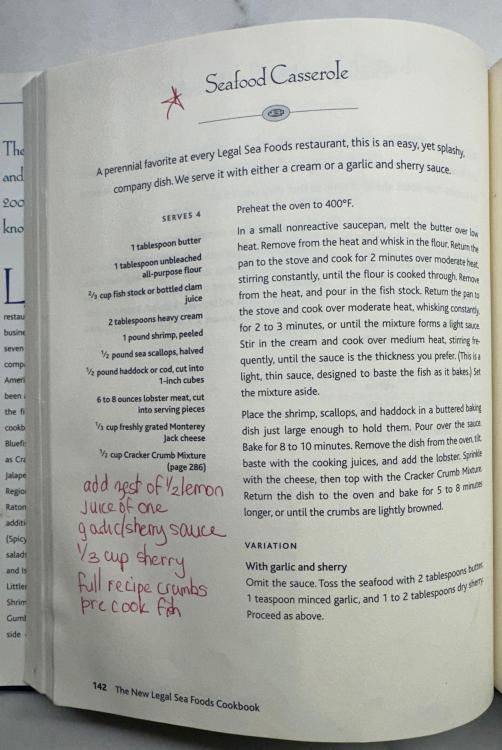 Seafood Casserole
A perennial favorite at every Legal Sea Foods restaurant, this is an easy, yet splashy,
company dish. We serve it with either a cream or a garlic and sherry sauce.
SERVES 4
1 tablespoon butter
1 tablespoon unbleached
all-purpose flour
⅔ cup fish stock or bottled clam
juice
2 tablespoons heavy cream
1 pound shrimp, peeled
½ pound sea scallops, halved
½ pound haddock or cod, cut into
1-inch cubes
6 to 8 ounces lobster meat, cut
into serving pieces
⅓ cup freshly grated Monterey
Jack cheese
½ cup Cracker Crumb Mixture
(page 286)
add zest of ½ lemon
juice of one
garlic/sherry sauce
⅓ cup sherry
full recipe crumbs
pre cook fish
Preheat the oven to 400°F.
In a small nonreactive saucepan, melt the butter over low
heat. Remove from the heat and whisk in the flour. Return the
pan to the stove and cook for 2 minutes over moderate heat,
stirring constantly, until the flour is cooked through. Remove
from the heat, and pour in the fish stock. Return the pan to
the stove and cook over moderate heat, whisking constantly,
for 2 to 3 minutes, or until the mixture forms a light sauce.
Stir in the cream and cook over medium heat, stirring fre-
quently, until the sauce is the thickness you prefer. (This is a
light, thin sauce, designed to baste the fish as it bakes.) Set
the mixture aside.
Place the shrimp, scallops, and haddock in a buttered baking
dish just large enough to hold them. Pour over the sauce.
Bake for 8 to 10 minutes. Remove the dish from the oven, tilt,
baste with the cooking juices, and add the lobster. Sprinkle
with the cheese, then top with the Cracker Crumb Mixture.
Return the dish to the oven and bake for 5 to 8 minutes
longer, or until the crumbs are lightly browned.
VARIATION
With garlic and sherry
Omit the sauce. Toss the seafood with 2 tablespoons butter,
1 teaspoon minced garlic, and 1 to 2 tablespoons dry sherry.
Proceed as above.
142 The New Legal Sea Foods Cookbook